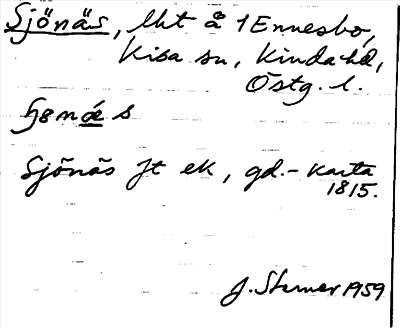 Sjönäs, lht å 1 Ennesbo,
Kisa sn, Kinda hd,
Östg. l.
Sjönäs Jt ek, gd.-karta
1815.
J. Sterner 1959